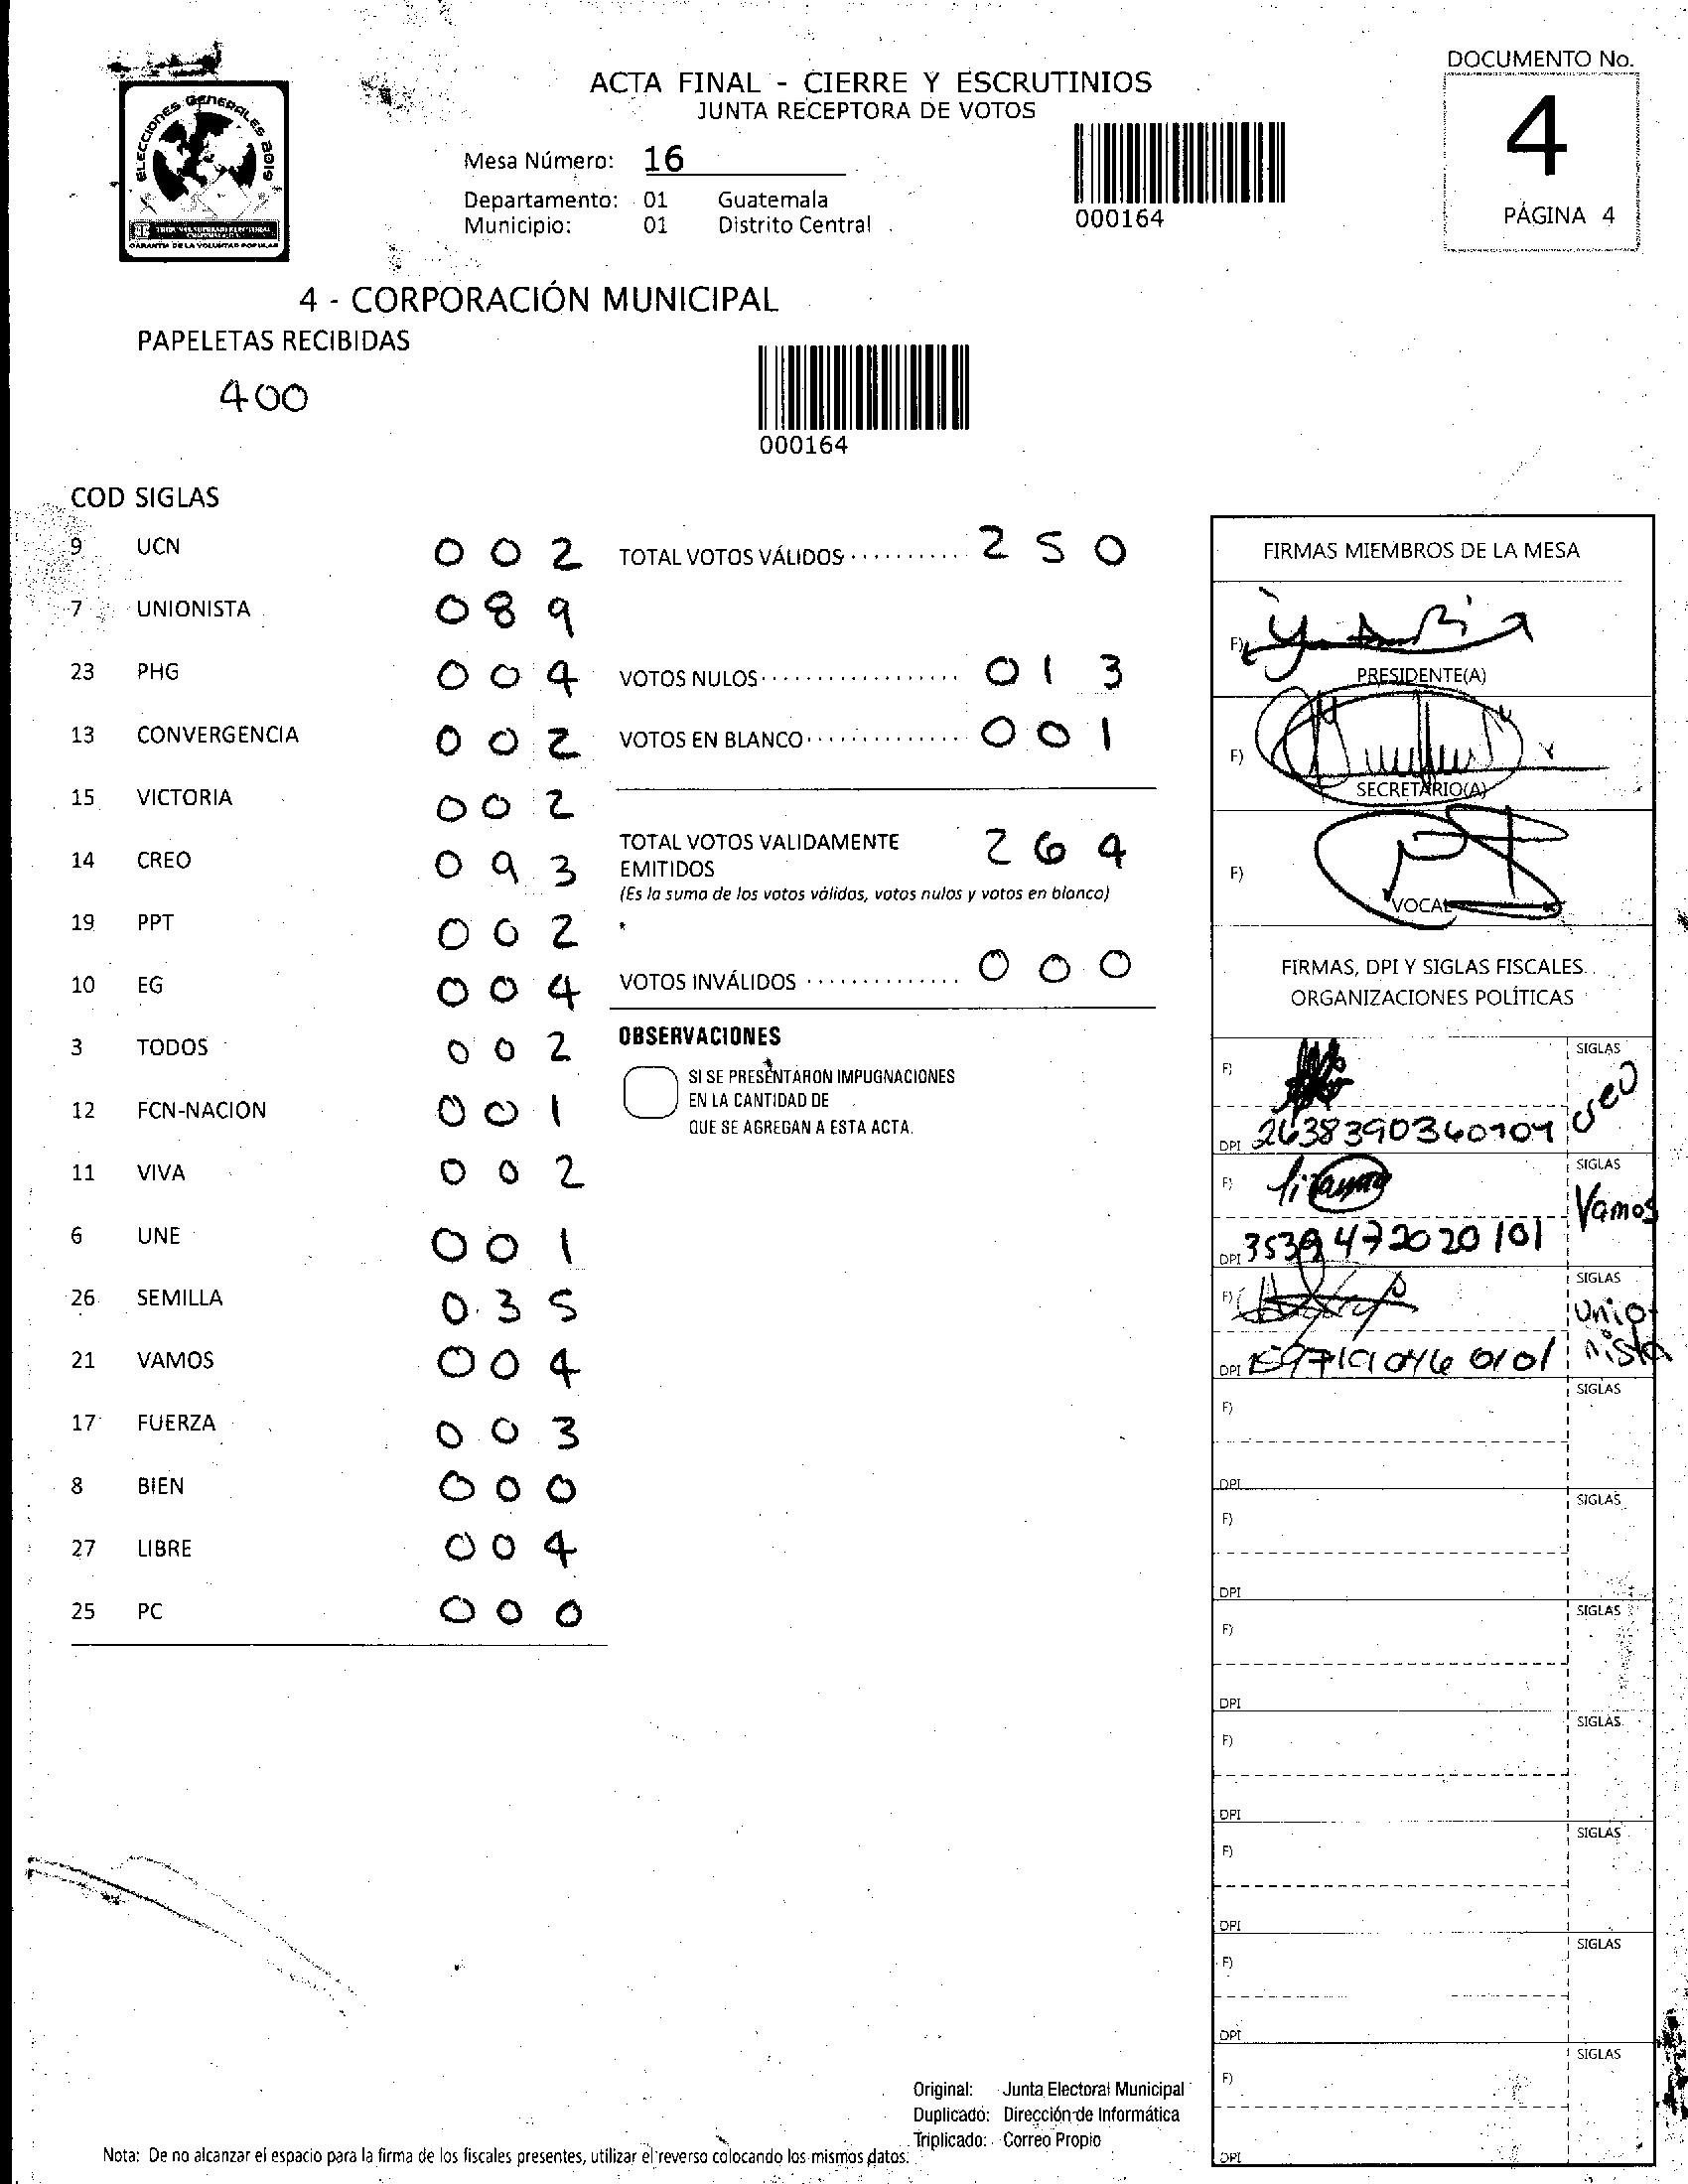 DOCUMENTO No.
4
PÁGINA 4
ELECCIONES GENERALES 2019
TRIBUNAL SUPREMO ELECTORAL
GARANTÍA DE LA VOLUNTAD POPULAR
ACTA FINAL - CIERRE Y ESCRUTINIOS
JUNTA RECEPTORA DE VOTOS
Mesa Número: 16
Departamento: 01 Guatemala
Municipio: 01 Distrito Central
000164
4 - CORPORACIÓN MUNICIPAL
PAPELETAS RECIBIDAS
400
000164
COD SIGLAS
9 UCN 0 0 2
7 UNIONISTA 0 8 9
23 PHG 0 0 4
13 CONVERGENCIA 0 0 2
15 VICTORIA 0 0 2
14 CREO 0 9 3
19 PPT 0 0 2
10 EG 0 0 4
3 TODOS 0 0 2
12 FCN-NACION 0 0 1
11 VIVA 0 0 2
6 UNE 0 0 1
26 SEMILLA 0 3 5
21 VAMOS 0 0 4
17 FUERZA 0 0 3
8 BIEN 0 0 0
27 LIBRE 0 0 4
25 PC 0 0 0
TOTAL VOTOS VÁLIDOS .......... 2 5 0
VOTOS NULOS .................. 0 1 3
VOTOS EN BLANCO .............. 0 0 1
TOTAL VOTOS VALIDAMENTE
EMITIDOS 2 6 4
(Es la suma de los votos válidos, votos nulos y votos en blanco)
VOTOS INVÁLIDOS .............. 0 0 0
OBSERVACIONES
SI SE PRESENTARON IMPUGNACIONES
EN LA CANTIDAD DE
QUE SE AGREGAN A ESTA ACTA.
FIRMAS MIEMBROS DE LA MESA
F)
PRESIDENTE(A)
F)
SECRETARIO(A)
F)
VOCAL
FIRMAS, DPI Y SIGLAS FISCALES
ORGANIZACIONES POLÍTICAS
F) SIGLAS
DPI 2638390360101 creo
F) SIGLAS
DPI 3539472020101 Vamos
F) SIGLAS
DPI Unio-
nista
F) SIGLAS
DPI
F) SIGLAS
DPI
F) SIGLAS
DPI
F) SIGLAS
DPI
F) SIGLAS
DPI
F) SIGLAS
DPI
F) SIGLAS
DPI
Original: Junta Electoral Municipal
Duplicado: Dirección de Informática
Triplicado: Correo Propio
Nota: De no alcanzar el espacio para la firma de los fiscales presentes, utilizar el reverso colocando los mismos datos.